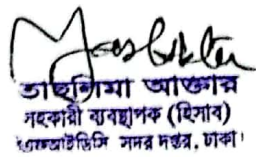 তাছলিমা আক্তার
সহকারী ব্যবস্থাপক (হিসাব)
সদর দপ্তর, ঢাকা।